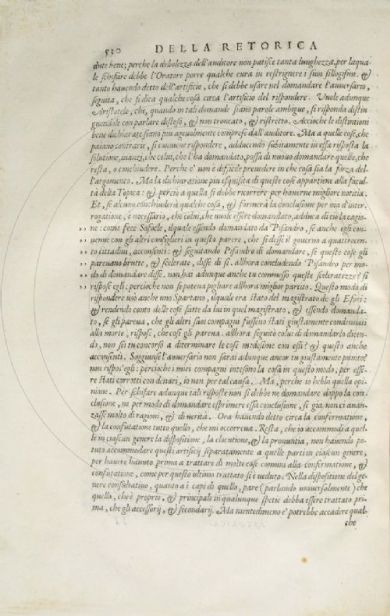 530 DELLA RETORICA
dute bene; perche la debolezza dell'auditore non patisce tanta lunghezza, per laqua
le schifare debbe l'Oratore porre qualche cura in restrignere i suoi sillogismi. Et
tanto havendo detto dell'artificio, che si debbe usare nel domandare l'avversario,
seguita, che si dica qualche cosa circa l'artificio del rispondere. Vuole adunque
Aristotele, che, quando in tali domande siano parole ambigue, si risponda distin
guendole con parlare disteso, & non troncato, & ristretto. Accioche le distintioni
bene dichiarate siano piu agevolmente comprese dall'auditore. Ma a quelle cose, che
paiono contrarie, si conviene rispondere, adducendo subitamente in essa risposta la
solutione, innanzi, che colui, che l'ha domandato, possa di nuovo domandare quello, che
resta, o conchiudere. Perche e' non è difficile prevedere in che cosa sia la forza del
l'argomento. Ma la dichiaratione piu esquisita di queste cose appartiene alla facul
tà della Topica: & perciò a quella si debbe ricorrere per haverne migliore notitia.
Et, se alcuno conchiuderà qualche cosa, & formerà la conclusione per via d'inter
rogatione, è necessario, che colui, che vuole essere domandato, adduca di ciò la cagio
ne: come fece Sofocle, ilquale essendo domandato da Pisandro, se anche egli con
venne con gli altri consiglieri in questo parere, che si desse il governo a quattrocen
to cittadini, acconsentì: & seguitando Pisandro di domandare, se queste cose gli
parevano brutte, & scelerate, disse di sì. allhora conchiudendo Pisandro per mo
do di domandare disse. non hai adunque anche tu commesso queste sceleratezze? sì
rispose egli, percioche non si poteva pigliare allhora miglior partito. Questo modo di
rispondere usò anche uno Spartano, ilquale era stato del magistrato de gli Efori:
& rendendo conto delle cose fatte da lui in quel magistrato, & essendo domanda-
to, se gli pareva, che gli altri suoi compagni fussero stati giustamente condannati
alla morte, rispose, che così gli pareva. allhora seguitò colui domandarlo dicen-
do, non sei tu concorso a determinare le cose medesime con essi? & questo anche
acconsentì. Soggiunse l'avversario non sarai adunque anche tu giustamente punito?
non rispos'egli: percioche i miei compagni intesero la cosa in questo modo, per esse-
re stati corrotti con denari, io non per tal causa. Ma, perche io hebbi quella opi
nione. Per schifare adunque tali risposte non si debbe ne domandare doppo la con
clusione, ne per modo di domandare esprimere essa conclusione, se già non ci avan
zasse molto di ragioni, & di verità. Ora havendo detto circa la confermatione,
& la confutatione tutto quello, che mi occorreva. Resta, che io accommodi a quel
le in ciascun genere la dispositione, la elocutione, & la pronuntia, non havendo po-
tuto accommodare questi artificij separatamente a quelle parti in ciascun genere,
per havere havuto prima a trattare di molte cose communi alla confermatione, &
confutatione, come per questo ultimo trattato si è veduto. Nella dispositione del ge-
nere consultativo, quanto a i capi di quello, pare (parlando universalmente) che
quello, che è proprio, & principale in qualunque spetie debba essere trattato pri-
ma, che gli accessorij, & secondarij. Ma nientedimeno e' potrebbe accadere qual-
che